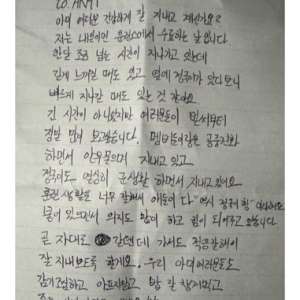 to. ARMY
아미 여러분 건강하게 잘 지내고 계신가요?
저는 내일이면 훈련소에서 수료하는 날입니다
한달 조금 넘는 시간이 지나가고 있는데
길게 느껴질 때도 있고 옆에 정국이 있다보니
빠르게 지나간 때도 있는 것 같아요
긴 시간이 아니었지만 여러분들이 벌써부터
정말 많이 보고싶습니다. 멤버들이랑은
하면서 안부 물으며 지내고 있고
정국이도 열심히 군생활 하면서 지내고 있어요
훈련 생활도 너무 잘해서
붙어 있으면서 의지도 많이 하고 힘이 되어주고 있습니다
곧 자대도 갈텐데 가서도 적응 잘해서
잘 지내보도록 할게요. 우리 아미 여러분들도
감기 조심하고 아프지말고 밥 잘 챙겨먹고